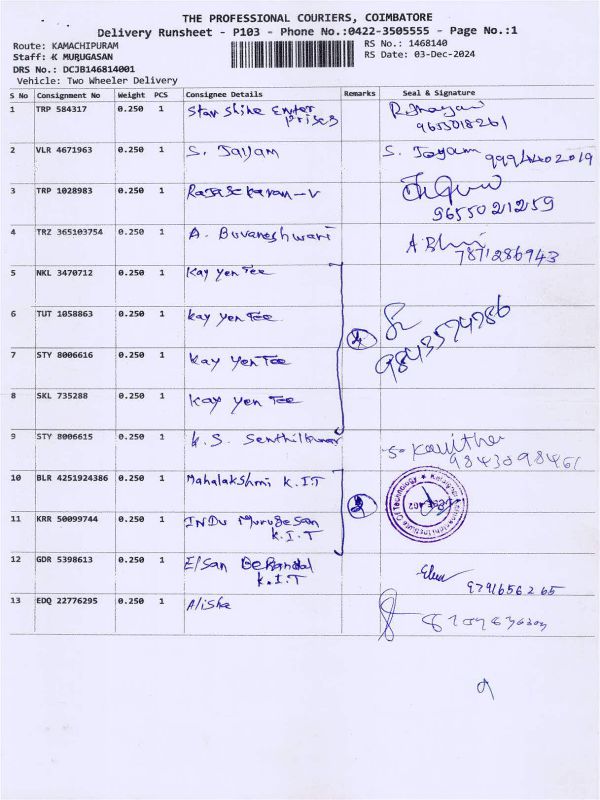 THE PROFESSIONAL COURIERS, COIMBATORE
Delivery Runsheet - P103 - Phone No.:0422-3505555 - Page No.:1
Route: KAMACHIPURAM
RS No.: 1468140
Staff: K MURUGASAN
RS Date: 03-Dec-2024
DRS No.: DCJB146814001
Vehicle: Two Wheeler Delivery
S No Consignment No Weight PCS Consignee Details Remarks Seal & Signature
1 TRP 584317 0.250 1 Star Shine Enter
prises
9655018261
2 VLR 4671963 0.250 1 S. Jayam S. Jayam 9994402019
3 TRP 1028983 0.250 1 RajaSekaran-V
9655021259
4 TRZ 365103754 0.250 1 A. Buvaneshwari
7871286943
5 NKL 3470712 0.250 1 Kay Yen Tee
6 TUT 1058863 0.250 1 Kay Yen Tee
4
9843574786
7 STY 8006616 0.250 1 Kay Yen Tee
8 SKL 735288 0.250 1 Kay Yen Tee
9 STY 8006615 0.250 1 K.S. Senthilkumar S. Kavitha
9843098461
10 BLR 4251924386 0.250 1 Mahalakshmi K.I.T
2
11 KRR 50099744 0.250 1 INDU Murugesan
K.I.T
12 GDR 5398613 0.250 1 Elsan
K.I.T
9791656265
13 EDQ 22776295 0.250 1 Alisha